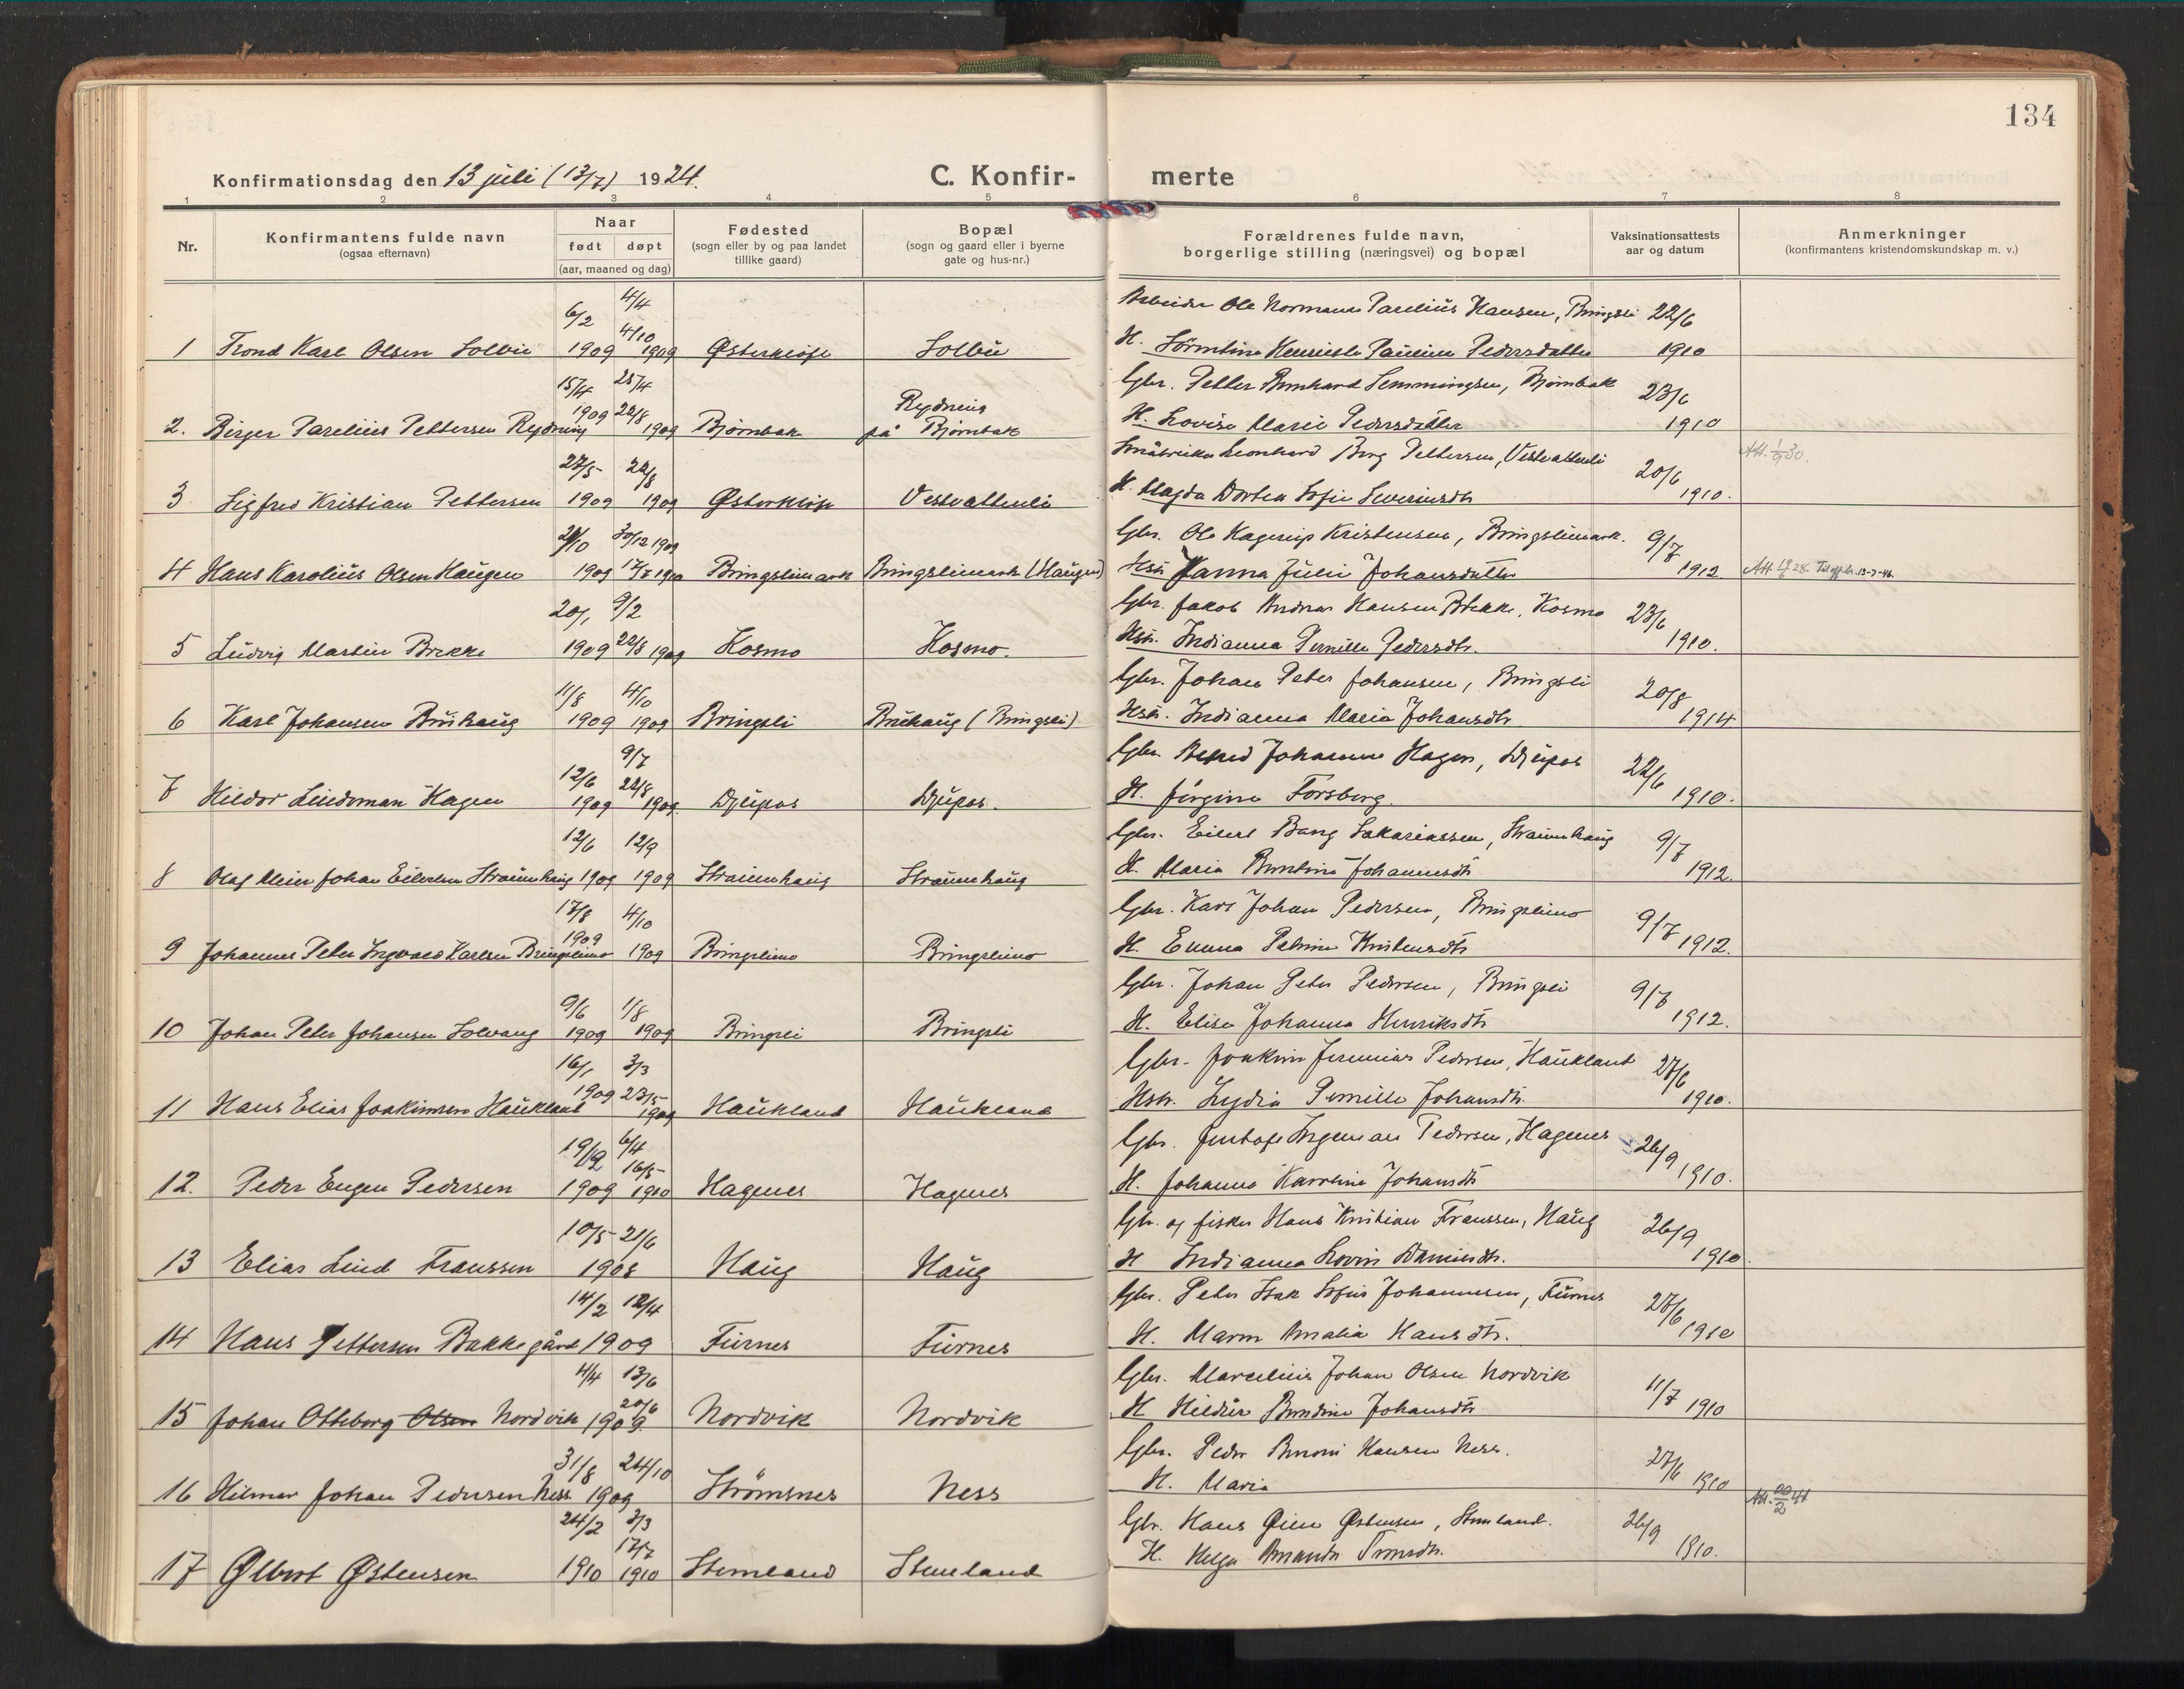 134
Konfirmationsdag den 13 juli (13/7) 1924.
C. Konfir- merte
1 2 3 4 5 6 7 8
Nr.
Konfirmantens fulde navn
(ogsaa efternavn)
Naar
født døpt
(aar, maaned og dag)
Fødested
(sogn eller by og paa landet
tillike gaard)
Bopæl
(sogn og gaard eller i byerne
gate og hus-nr.)
Forældrenes fulde navn,
borgerlige stilling (næringsvei) og bopæl
Vaksinationsattests
aar og datum
Anmerkninger
(konfirmantens kristendomskundskap m. v.)
6/2 4/4 4/10 Arbeider Ole Normann Parelius Hansen, Bringsli 22/6
1 Trond Karl Olsen Solbu 1909 1909 Østerkløft Solbu H. Pauline Pedersdatter 1910
15/4 25/4 Gbr. Petter Bernhard Lemmingsen, Bjørnbak 23/6
2. Birger Parelius Pettersen Rydning 1909 22/8 1909 Bjørnbak Rydning på Bjørnbak H. Lovise Marie Pedersdatter 1910
27/5 22/8 Småbruker Leonhard Berg Pettersen, Vestvattenli 20/6 Att. 1/9 30.
3 Sigfred Kristian Pettersen 1909 1909 Østerkløft Vestvattenli H. Magda Dortea Sofie Severinsdtr 1910.
21/10 30/12 1909 Gbr. Ole Kagerup Kristensen, Bringslimark. 9/7
4 Hans Karolius Olsen Haugen 1909 17/7 1910 Bringslimark Bringslimark (Haugen) Hstr. Janna Julie Johansdatter 1912. Att. 19/6 28.
20/1 9/2 Gbr. Jakob Andreas Hansen Brekke, Kosmo 23/6
5 Ludvig Martin Brekke 1909 22/8 1909 Kosmo Kosmo. Hstr. Indianna Pernille Pedersdtr. 1910.
11/8 4/10 Gbr. Johan Peter Johansen, Bringsli 20/8
6 Karl Johansen Bruhaug 1909 1909 Bringsli Bruhaug (Bringsli) Hstr. Indianna Maria Johansdtr 1914
12/6 9/7 22/8 Gbr. Johannes Hagen, Djupos 22/6
7 Hildor Lindeman Hagen 1909 1909. Djupos Djupos. H. Jørgine Forsberg. 1910.
12/6 12/9 Gbr. Eilert Bang Sakariassen, Straumhaug 9/7
8 Olaf Meier Johan Eilertsen Straumhaug 1909 1909 Straumhaug Straumhaug H. Maria Berntine Johannesdtr 1912.
17/8 4/10 Gbr. Karl Johan Pedersen, Bringslimo 9/7
9 Johannes Peter Ingvald Karlsen Bringslimo 1909 1909 Bringslimo Bringslimo H. Emma Petrine Kristensdtr 1912.
9/6 1/8 Gbr. Johan Peter Pedersen, Bringsli 9/7
10 Johan Peter Johansen Solvang 1909 1909 Bringsli Bringsli H. Elise Johanna Henriksdtr 1912.
16/1 3/3 Gbr. Joakim Jeremias Pedersen, Haukland 27/6
11 Hans Elias Joakimsen Haukland 1909 23/5 1909 Haukland Haukland Hstr. Lydia Pernille Johansdtr. 1910.
19/12 6/4 16/5 Gbr. Jentoft Ingeman Pedersen, Hagenes 26/9
12. Peder Eugen Pedersen 1909 1910 Hagenes Hagenes H. Johanna Karoline Johansdtr 1910.
10/5 21/6 Gbr. og fisker Hans Kristian Franssen, Haug 26/9
13 Elias Lind Franssen 1908 Haug Haug H Indianna Lovise Danielsdtr. 1910.
14/2 12/4 Gbr. Peter Isak Sofus Johannesen, Furnes 27/6
14 Hans Pettersen Bakkegård 1909 Furnes Furnes H. Maren Amalia Hansdtr. 1910
4/4 13/6 20/6 Gbr. Marcelius Johan Olsen Nordvik 11/7
15 Johan Otteborg Olsen Nordvik 1909. Nordvik Nordvik H Hildur Berndine Johansdtr 1910
31/8 24/10 Gbr. Peder Benoni Hansen Ness. 27/6
16 Hilmar Johan Pedersen Ness 1909 Strømsnes Ness H. Maria 1910 Att. 20/2 41
24/2 3/3 17/7 Gbr. Hans Østensen, Stemland. 26/9
17 Ølbert Østensen 1910 1910 Stemland Stemland H. Helga Amanda 1910.